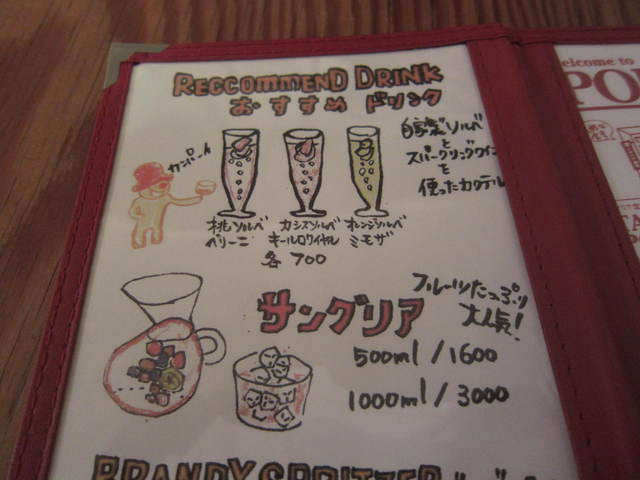 RECCOMMEND DRINK
おすすめ ドリンク
カンパーイ
自家製ソルベ
と
スパークリングワイン
を
使ったカクテル
桃ソルベ
ベリーニ
カシスソルベ
キールロワイヤル
オレンジソルベ
ミモザ
各 700
サングリア
フルーツたっぷり
大人気!
500ml / 1600
1000ml / 3000
BRANDY SPRITZER
elcome to
PO